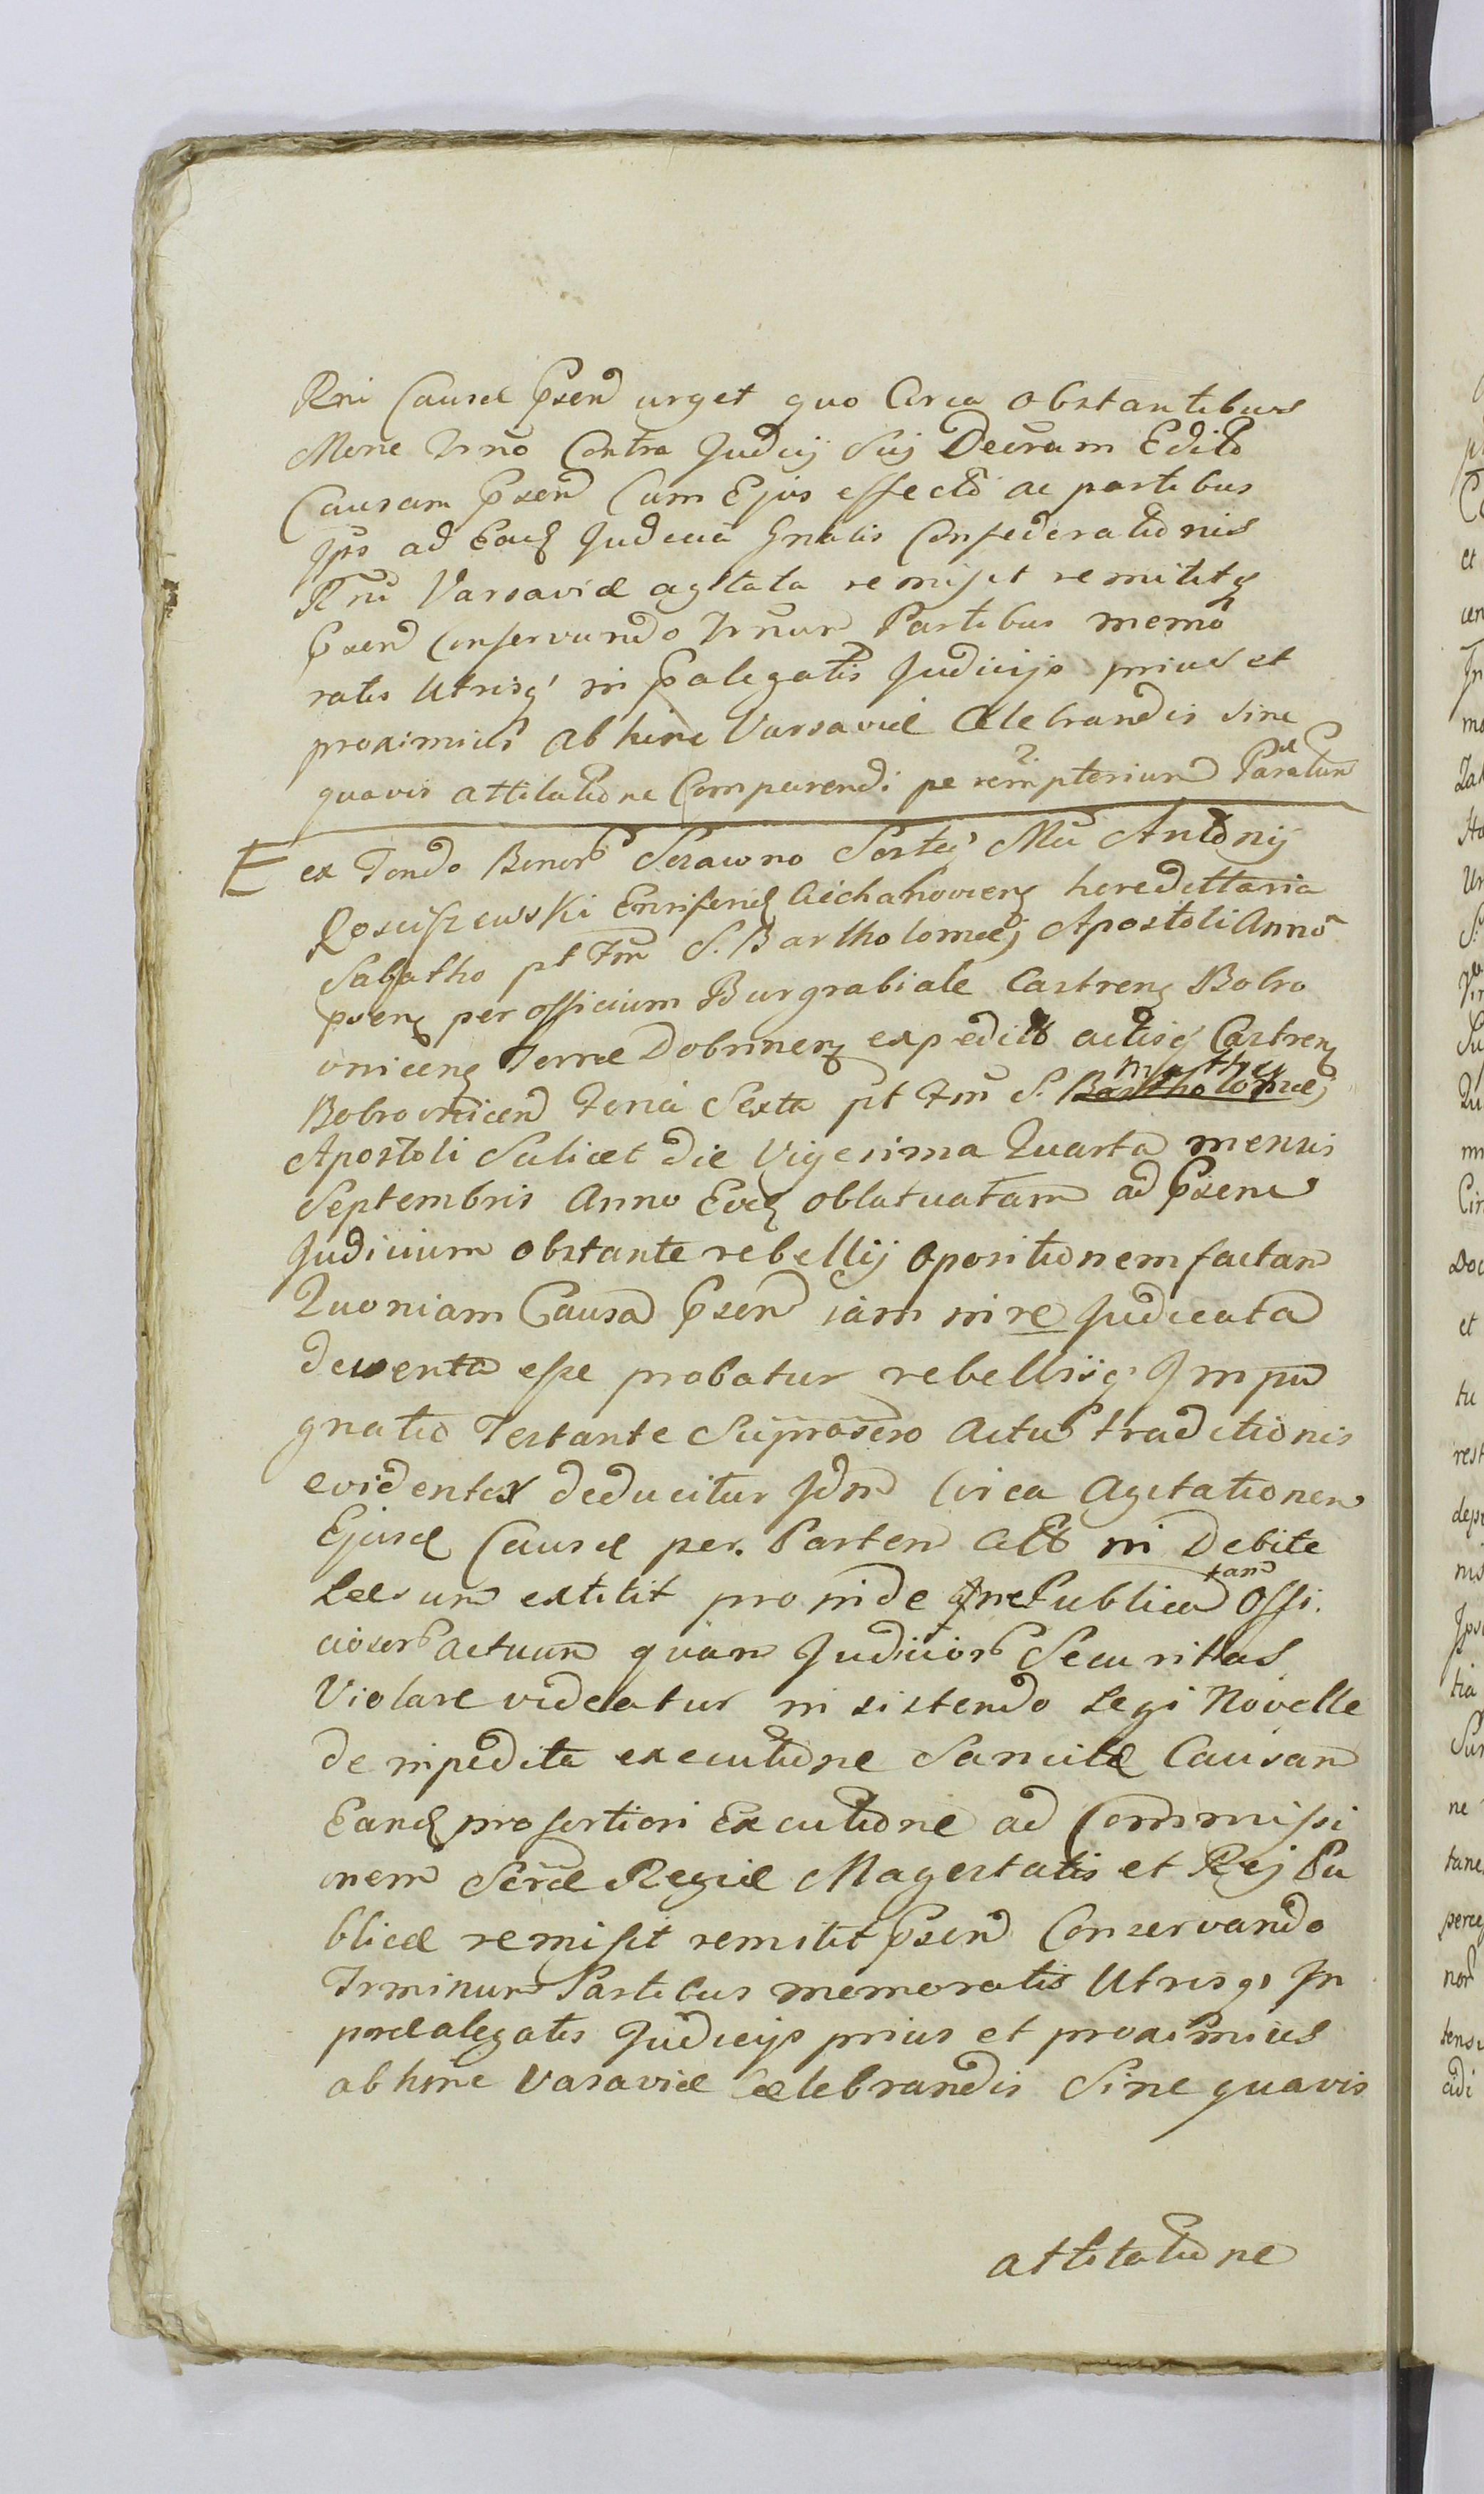 Rni Causæ Psen urget quo Circa obstantibus
Mene Trno Contra Judicij Sui Decram Edito
Causam Psen Cum Ejus effecto ac partibus
Ipso ad Eadz Judicia Gnalis Confederationis
R ni Varsaviæ agitata remisit remititqz
Psen Conservando Trnum Partibus memo
ratis Utrisq' in Palegatis Judicijs prius et
proximius ab hinc Varsaviæ Celebrandis sine
quavis attitatione Comparendi peremptorium Paratum
ex Fondo Bonor Serawno Sortis Mci Antonij
Rosciszewski Ensiferidz Ciechanoviens hæredittaria
Sabatho pt Fm S. Bartholomæj Apostoli Anno
psens per officium Burgrabiale Castrens Bobro
vnicens Terræ Dobrinens expedito actisq' Castrens
matthæ
Bobrovnicen Feria Sexta pt Fm S. Bartholomæj
Apostoli Scilicet die Vigesima Quarta mensis
Septembris Anno Eodz oblatuatam ad Psens
Judicium obstante rebellij Opositionem factam
Quoniam Causa Psen iam in re Judicata
deventa esse probatur rebellisq' Impu
gnatio Testante Suprasero Actu traditionis
evidenter deducitur Idm Circa Agitationem
Ejusd Causæ per. Partem Acto in Debite
Læsum extitit proinde ne Publica tam Offi.
ciosor actuum quam Judicior Securitas
Violare videatur in sistendo Legi Novellæ
de inpedita executione Sancitæ Causam
Eandz pro fortiori Excutione ad Commissi
onem Seræ Regiæ Magestatis et Rej Pu
blicæ remisit remitit Psen Conservando
Trminum Partibus memoratis Utrisq' In
præalegatis Judicijs prius et proximius
ab hinc Varaviæ Celebrandis Sine quavis
attitatione